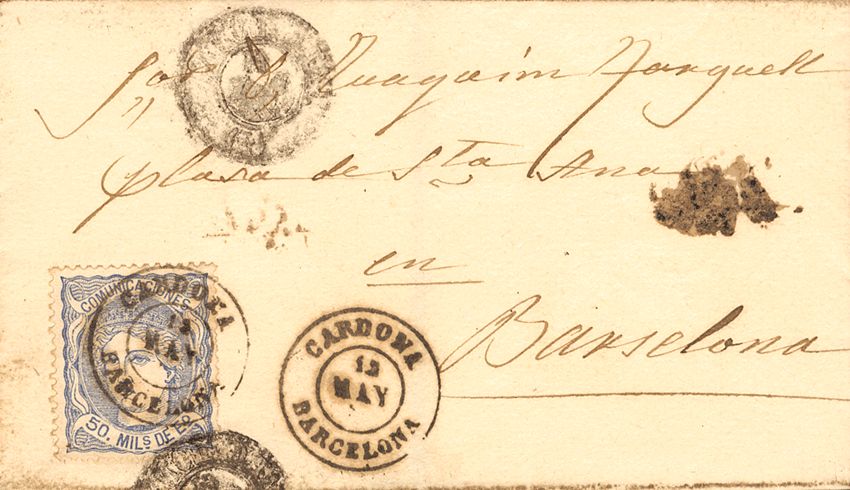 Juaquim
plasa de Sta Ana
en
Barselona
COMUNICACIONES
50. MILS DE Eo
CARDONA
12
MAY
BARCELONA
CARDONA
12
MAY
BARCELONA